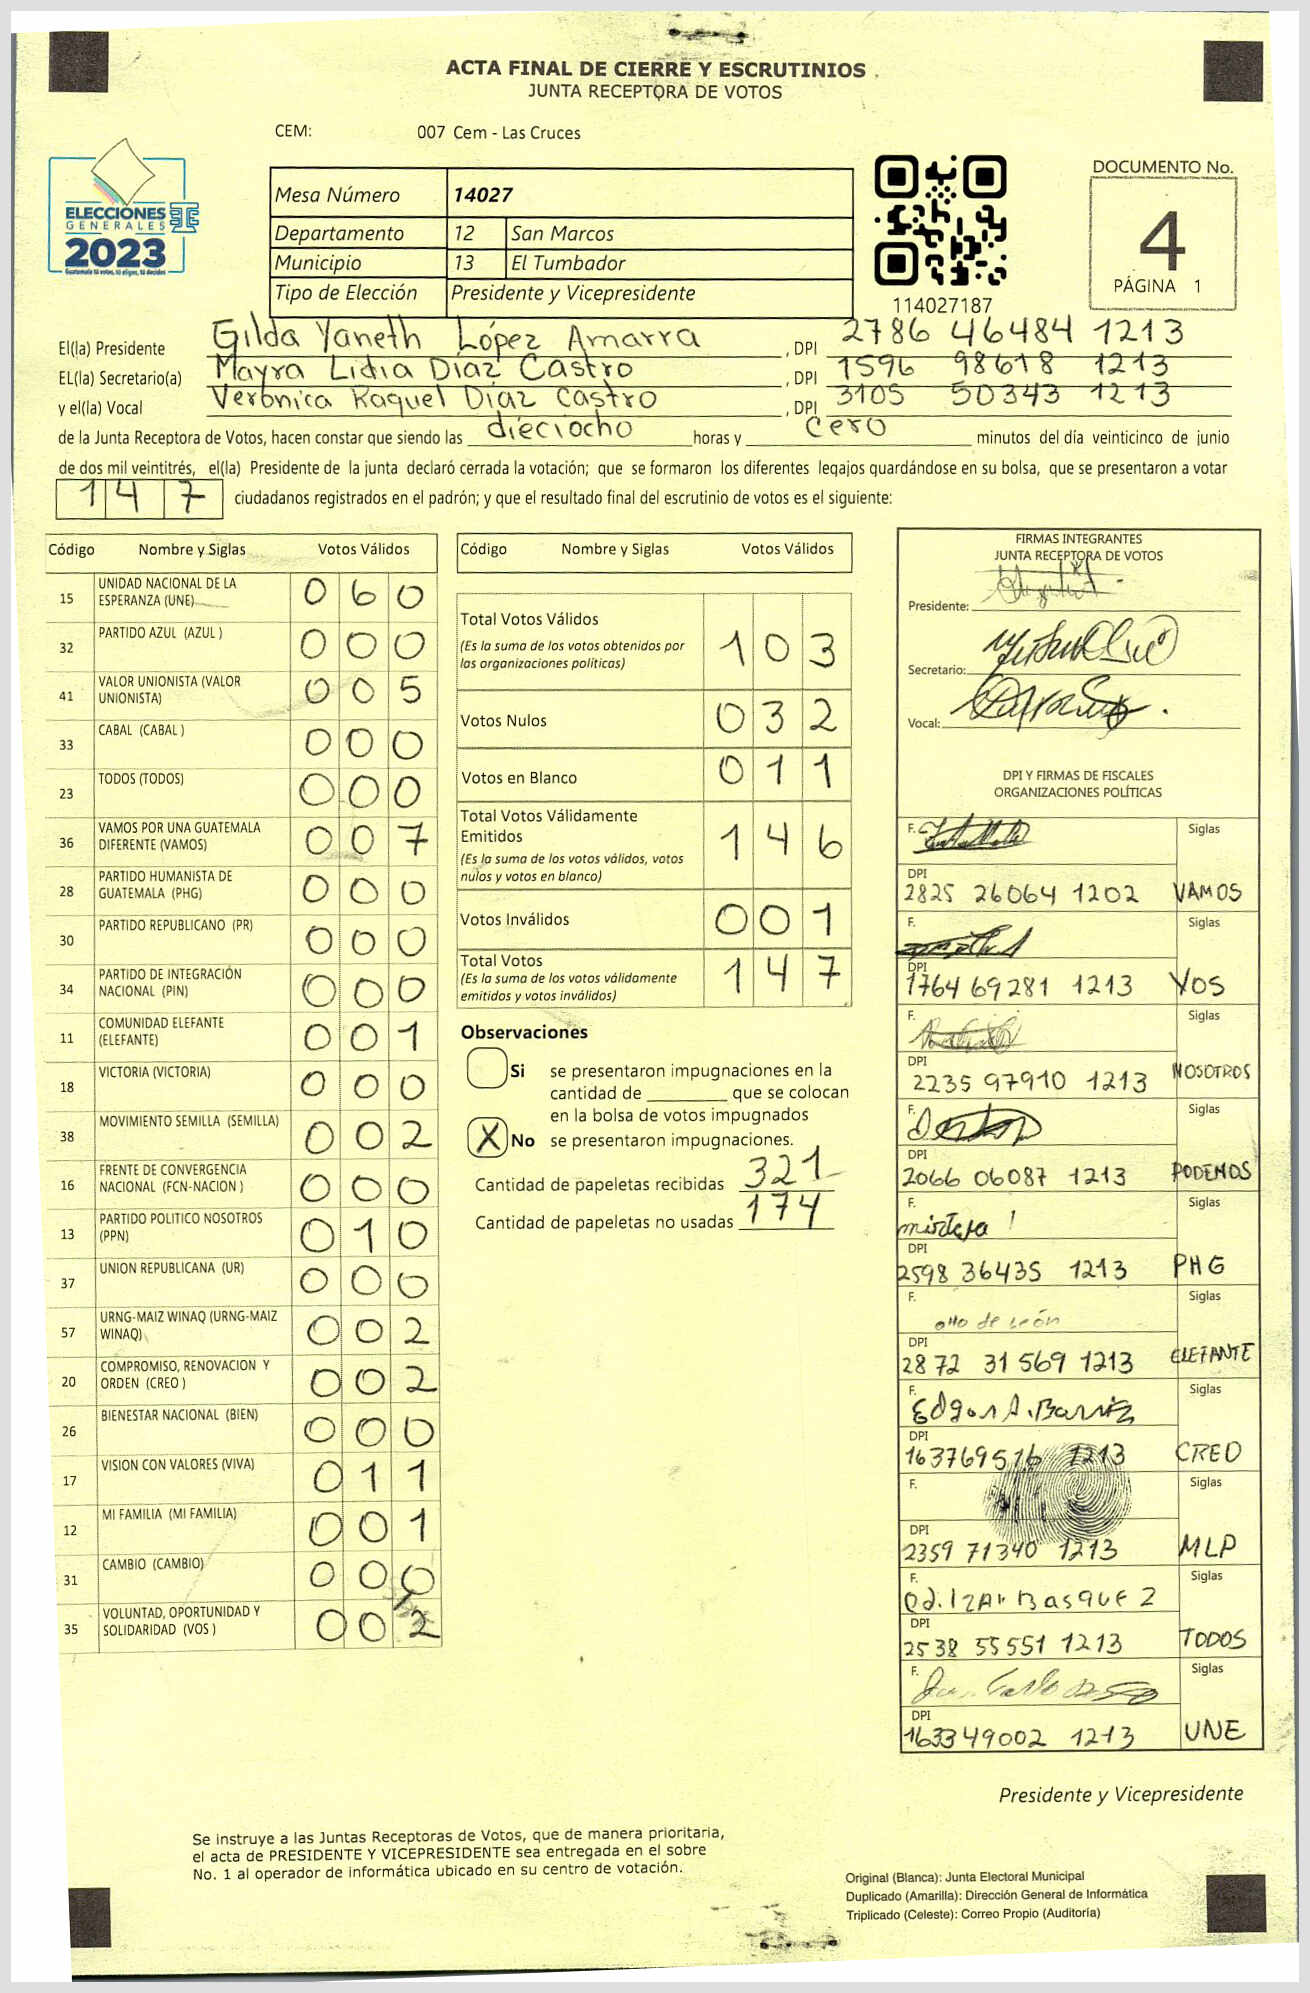 ACTA FINAL DE CIERRE Y ESCRUTINIOS
JUNTA RECEPTORA DE VOTOS
CEM: 007 Cem - Las Cruces
ELECCIONES
GENERALES
2023
Guatemala tú votas, tú eliges, tú decides
Mesa Número 14027
Departamento 12 San Marcos
Municipio 13 El Tumbador
Tipo de Elección Presidente y Vicepresidente
114027187
DOCUMENTO No.
4
PÁGINA 1
El(la) Presidente Gilda Yaneth López Amarra, DPI 2786 46484 1213
EL(la) Secretario(a) Mayra Lidia Díaz Castro, DPI 1596 98618 1213
y el(la) Vocal Verónica Raquel Díaz Castro, DPI 3105 50343 1213
de la Junta Receptora de Votos, hacen constar que siendo las dieciocho horas y cero minutos del día veinticinco de junio
de dos mil veintitrés, el(la) Presidente de la junta declaró cerrada la votación; que se formaron los diferentes legajos guardándose en su bolsa, que se presentaron a votar
147 ciudadanos registrados en el padrón; y que el resultado final del escrutinio de votos es el siguiente:
Código Nombre y Siglas Votos Válidos
15 UNIDAD NACIONAL DE LA ESPERANZA (UNE) 060
32 PARTIDO AZUL (AZUL ) 000
41 VALOR UNIONISTA (VALOR UNIONISTA) 005
33 CABAL (CABAL ) 000
23 TODOS (TODOS) 000
36 VAMOS POR UNA GUATEMALA DIFERENTE (VAMOS) 007
28 PARTIDO HUMANISTA DE GUATEMALA (PHG) 000
30 PARTIDO REPUBLICANO (PR) 000
34 PARTIDO DE INTEGRACIÓN NACIONAL (PIN) 000
11 COMUNIDAD ELEFANTE (ELEFANTE) 001
18 VICTORIA (VICTORIA) 000
38 MOVIMIENTO SEMILLA (SEMILLA) 002
16 FRENTE DE CONVERGENCIA NACIONAL (FCN-NACION ) 000
13 PARTIDO POLITICO NOSOTROS (PPN) 010
37 UNION REPUBLICANA (UR) 000
57 URNG-MAIZ WINAQ (URNG-MAIZ WINAQ) 002
20 COMPROMISO, RENOVACION Y ORDEN (CREO ) 002
26 BIENESTAR NACIONAL (BIEN) 000
17 VISION CON VALORES (VIVA) 011
12 MI FAMILIA (MI FAMILIA) 001
31 CAMBIO (CAMBIO) 000
35 VOLUNTAD, OPORTUNIDAD Y SOLIDARIDAD (VOS ) 002
Código Nombre y Siglas Votos Válidos
Total Votos Válidos 103
(Es la suma de los votos obtenidos por
las organizaciones políticas)
Votos Nulos 032
Votos en Blanco 011
Total Votos Válidamente
Emitidos 146
(Es la suma de los votos válidos, votos
nulos y votos en blanco)
Votos Inválidos 001
Total Votos 147
(Es la suma de los votos válidamente
emitidos y votos inválidos)
Observaciones
Si se presentaron impugnaciones en la
cantidad de ________ que se colocan
en la bolsa de votos impugnados
X No se presentaron impugnaciones.
Cantidad de papeletas recibidas 321
Cantidad de papeletas no usadas 174
FIRMAS INTEGRANTES
JUNTA RECEPTORA DE VOTOS
Presidente:
Secretario:
Vocal:
DPI Y FIRMAS DE FISCALES
ORGANIZACIONES POLÍTICAS
F. Siglas
DPI
2825 26064 1202 VAMOS
F. Siglas
DPI
1764 69281 1213 VOS
F. Siglas
DPI
2235 97910 1213 NOSOTROS
F. Siglas
DPI
2066 06087 1213 PODEMOS
F. Siglas
DPI
2598 36435 1213 PHG
F. Siglas
otto de León
DPI
2872 31569 1213 ELEFANTE
F. Siglas
DPI
163769516 1213 CREO
F. Siglas
DPI
2359 71340 1213 MLP
F. Siglas
DPI
2538 55551 1213 TODOS
F. Siglas
DPI
163349002 1213 UNE
Presidente y Vicepresidente
Se instruye a las Juntas Receptoras de Votos, que de manera prioritaria,
el acta de PRESIDENTE Y VICEPRESIDENTE sea entregada en el sobre
No. 1 al operador de informática ubicado en su centro de votación.
Original (Blanca): Junta Electoral Municipal
Duplicado (Amarilla): Dirección General de Informática
Triplicado (Celeste): Correo Propio (Auditoría)